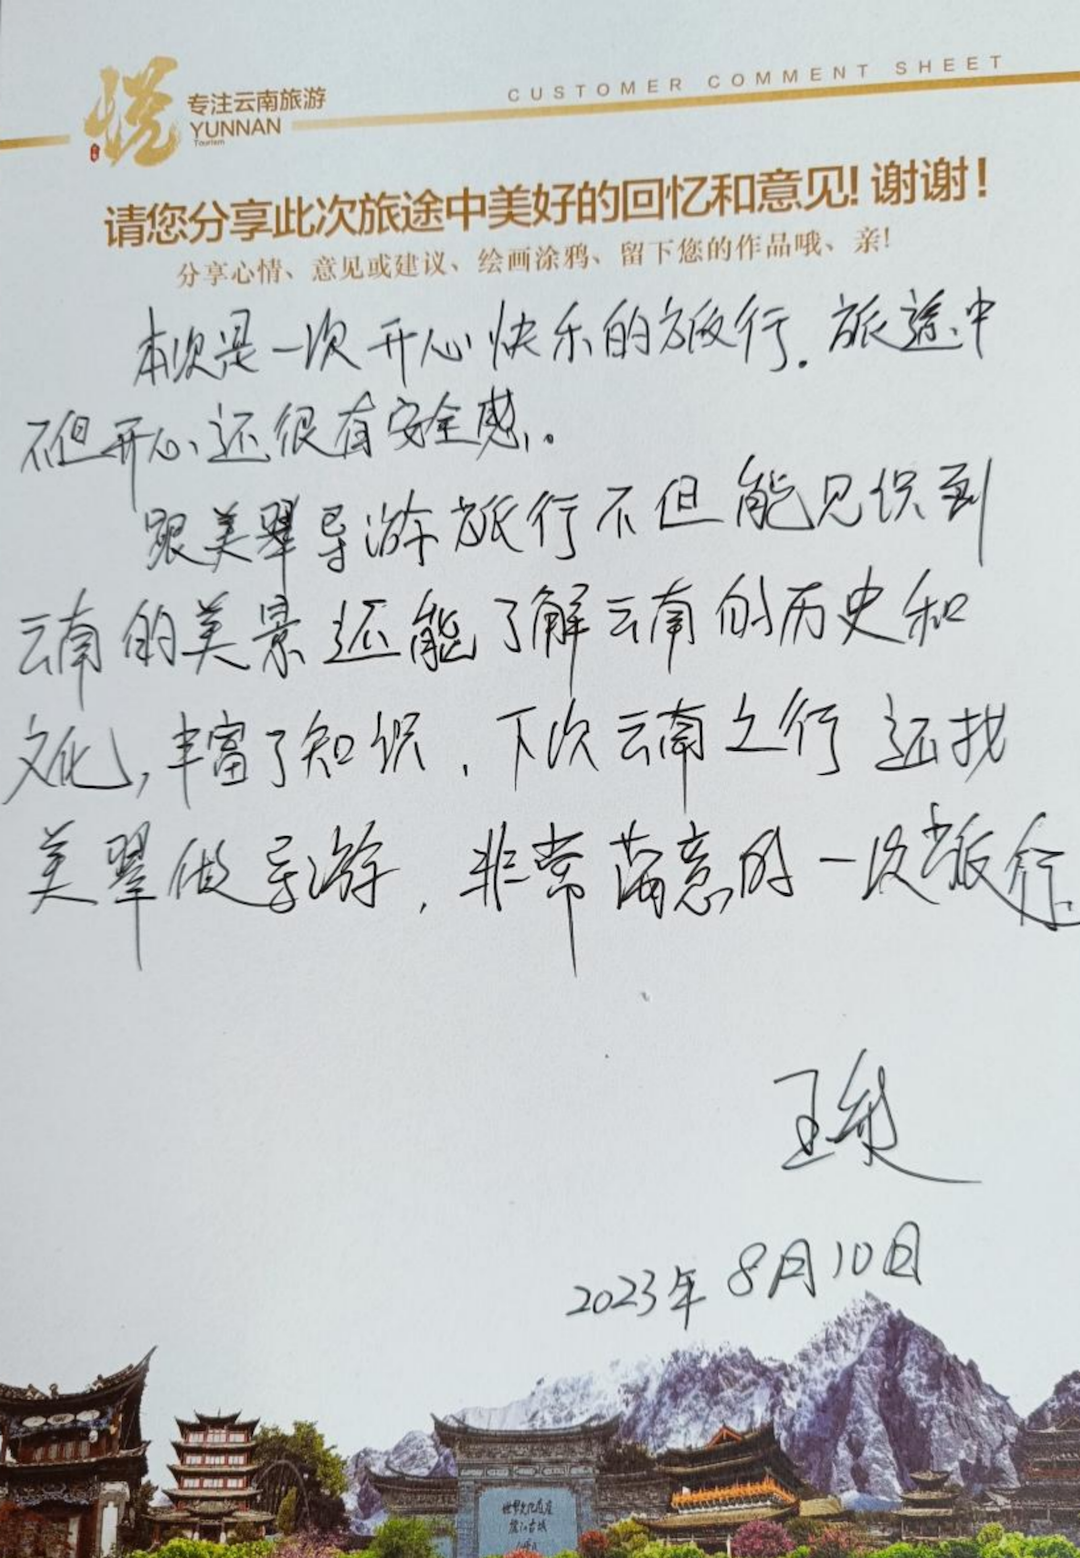 悦
专注云南旅游
YUNNAN
Tourism
CUSTOMER COMMENT SHEET
请您分享此次旅途中美好的回忆和意见!谢谢!
分享心情、意见或建议、绘画涂鸦、留下您的作品哦、亲!
本次是一次开心快乐的旅行.旅途中
不但开心、还很有安全感。
跟美翠导游旅行不但能见识到
云南的美景还能了解云南的历史和
文化,丰富了知识,下次云南之行还找
美翠做导游,非常满意的一次旅行.
王
2023年8月10日